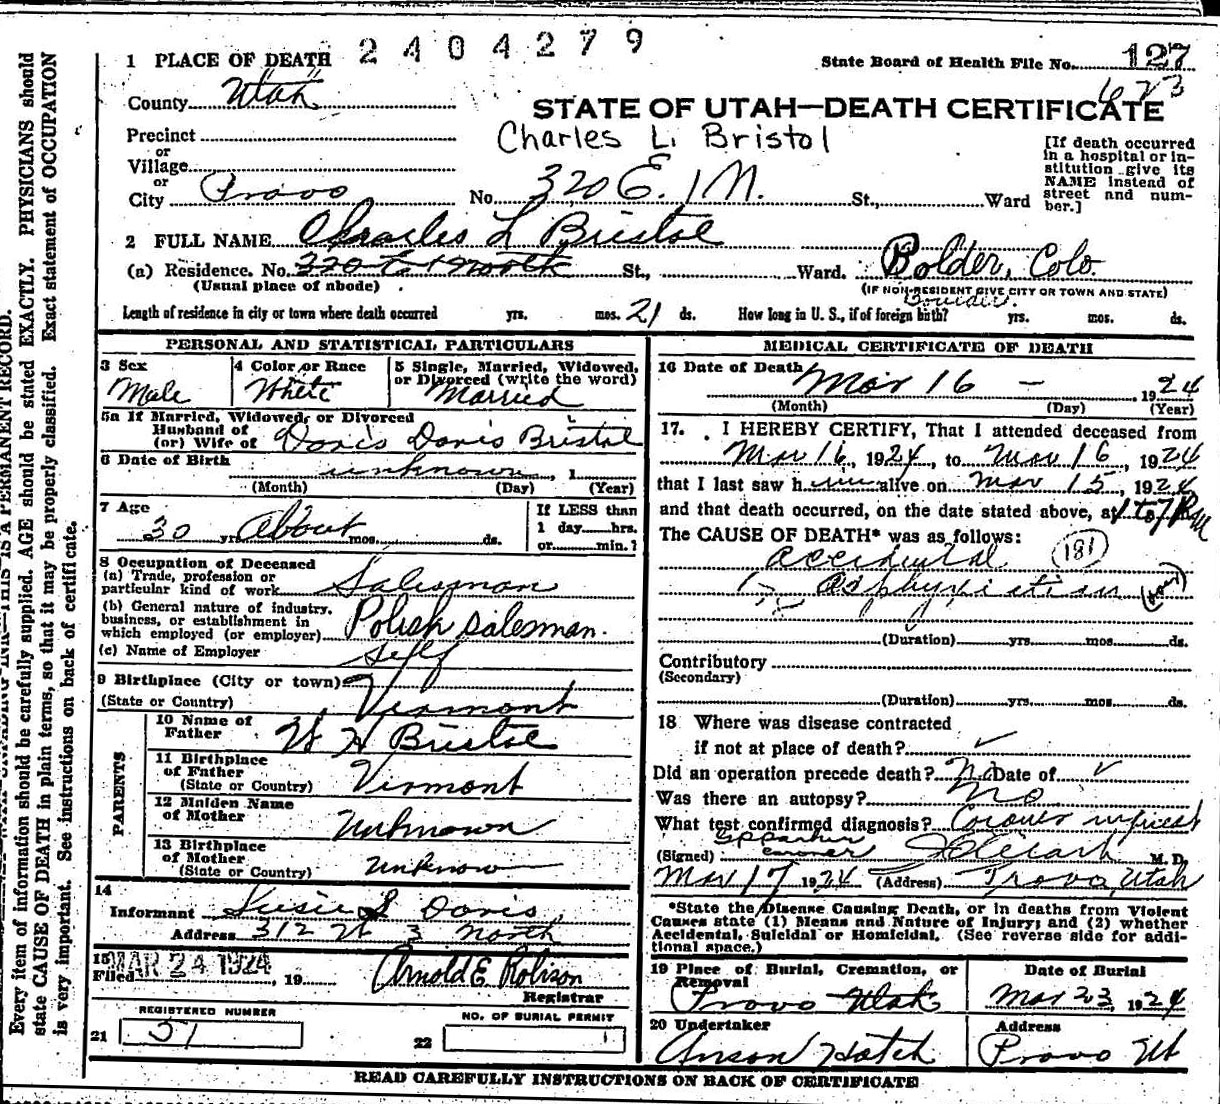 2404279
1 PLACE OF DEATH
State Board of Health File No. 127
623
County Utah
STATE OF UTAH—DEATH CERTIFICATE
Charles L. Bristol
Precinct
or
Village
or
City Provo No. 320 E. 1 N. St., Ward
[If death occurred
in a hospital or in-
stitution give its
NAME instead of
street and num-
ber.]
2 FULL NAME Charles L Bristol
(a) Residence. No. 320 E 1 North St., Ward. Bolder, Colo.
(Usual place of abode)
(IF NON-RESIDENT GIVE CITY OR TOWN AND STATE)
Boulder.
Length of residence in city or town where death occurred yrs. mos. 21 ds. How long in U. S., if of foreign birth? yrs. mos. ds.
PERSONAL AND STATISTICAL PARTICULARS
3 Sex
Male
4 Color or Race
White
5 Single, Married, Widowed,
or Divorced (write the word)
Married
5a If Married, Widowed, or Divorced
Husband of
(or) Wife of Doris Davis Bristol
6 Date of Birth unknown, 1
(Month) (Day) (Year)
7 Age
30 yrs. About mos. ds.
If LESS than
1 day hrs.
or min.?
8 Occupation of Deceased
(a) Trade, profession or
particular kind of work Salesman
(b) General nature of industry,
business, or establishment in
which employed (or employer) Polish salesman.
(c) Name of Employer self
9 Birthplace (City or town)
(State or Country) Virmont
PARENTS
10 Name of
Father W H Bristol
11 Birthplace
of Father
(State or Country) Virmont
12 Maiden Name
of Mother Unknown
13 Birthplace
of Mother
(State or Country) unknown
14
Informant Susie S Davis
Address 312 W 3 North
15
Filed MAR 24 1924, 19 Arnold E Robison
Registrar
REGISTERED NUMBER
21 51
NO. OF BURIAL PERMIT
22
MEDICAL CERTIFICATE OF DEATH
16 Date of Death Mar 16 – 1924
(Month) (Day) (Year)
17. I HEREBY CERTIFY, That I attended deceased from
Mar 16, 1924, to Mar 16, 1924
that I last saw him alive on Mar 15, 1924
and that death occurred, on the date stated above, at 1 to 7 P m
The CAUSE OF DEATH* was as follows:
accidental (181)
asphyxiation
(Duration) yrs. mos. ds.
Contributory
(Secondary)
(Duration) yrs. mos. ds.
18 Where was disease contracted
if not at place of death? ✓
Did an operation precede death? No Date of ✓
Was there an autopsy? No
What test confirmed diagnosis? Coroner inquest
coroner
(Signed) M. D.
Mar 17 1924 (Address) Provo, Utah
*State the Disease Causing Death, or in deaths from Violent
Causes state (1) Means and Nature of Injury; and (2) whether
Accidental, Suicidal or Homicidal. (See reverse side for addi-
tional space.)
19 Place of Burial, Cremation, or
Removal
Provo Utah
Date of Burial
Mar 23, 1924
20 Undertaker
Anson Hatch
Address
Provo Ut
READ CAREFULLY INSTRUCTIONS ON BACK OF CERTIFICATE
THIS IS A PERMANENT RECORD.
Every item of information should be carefully supplied. AGE should be stated EXACTLY. PHYSICIANS should
state CAUSE OF DEATH in plain terms, so that it may be properly classified. Exact statement of OCCUPATION
is very important. See instructions on back of certificate.